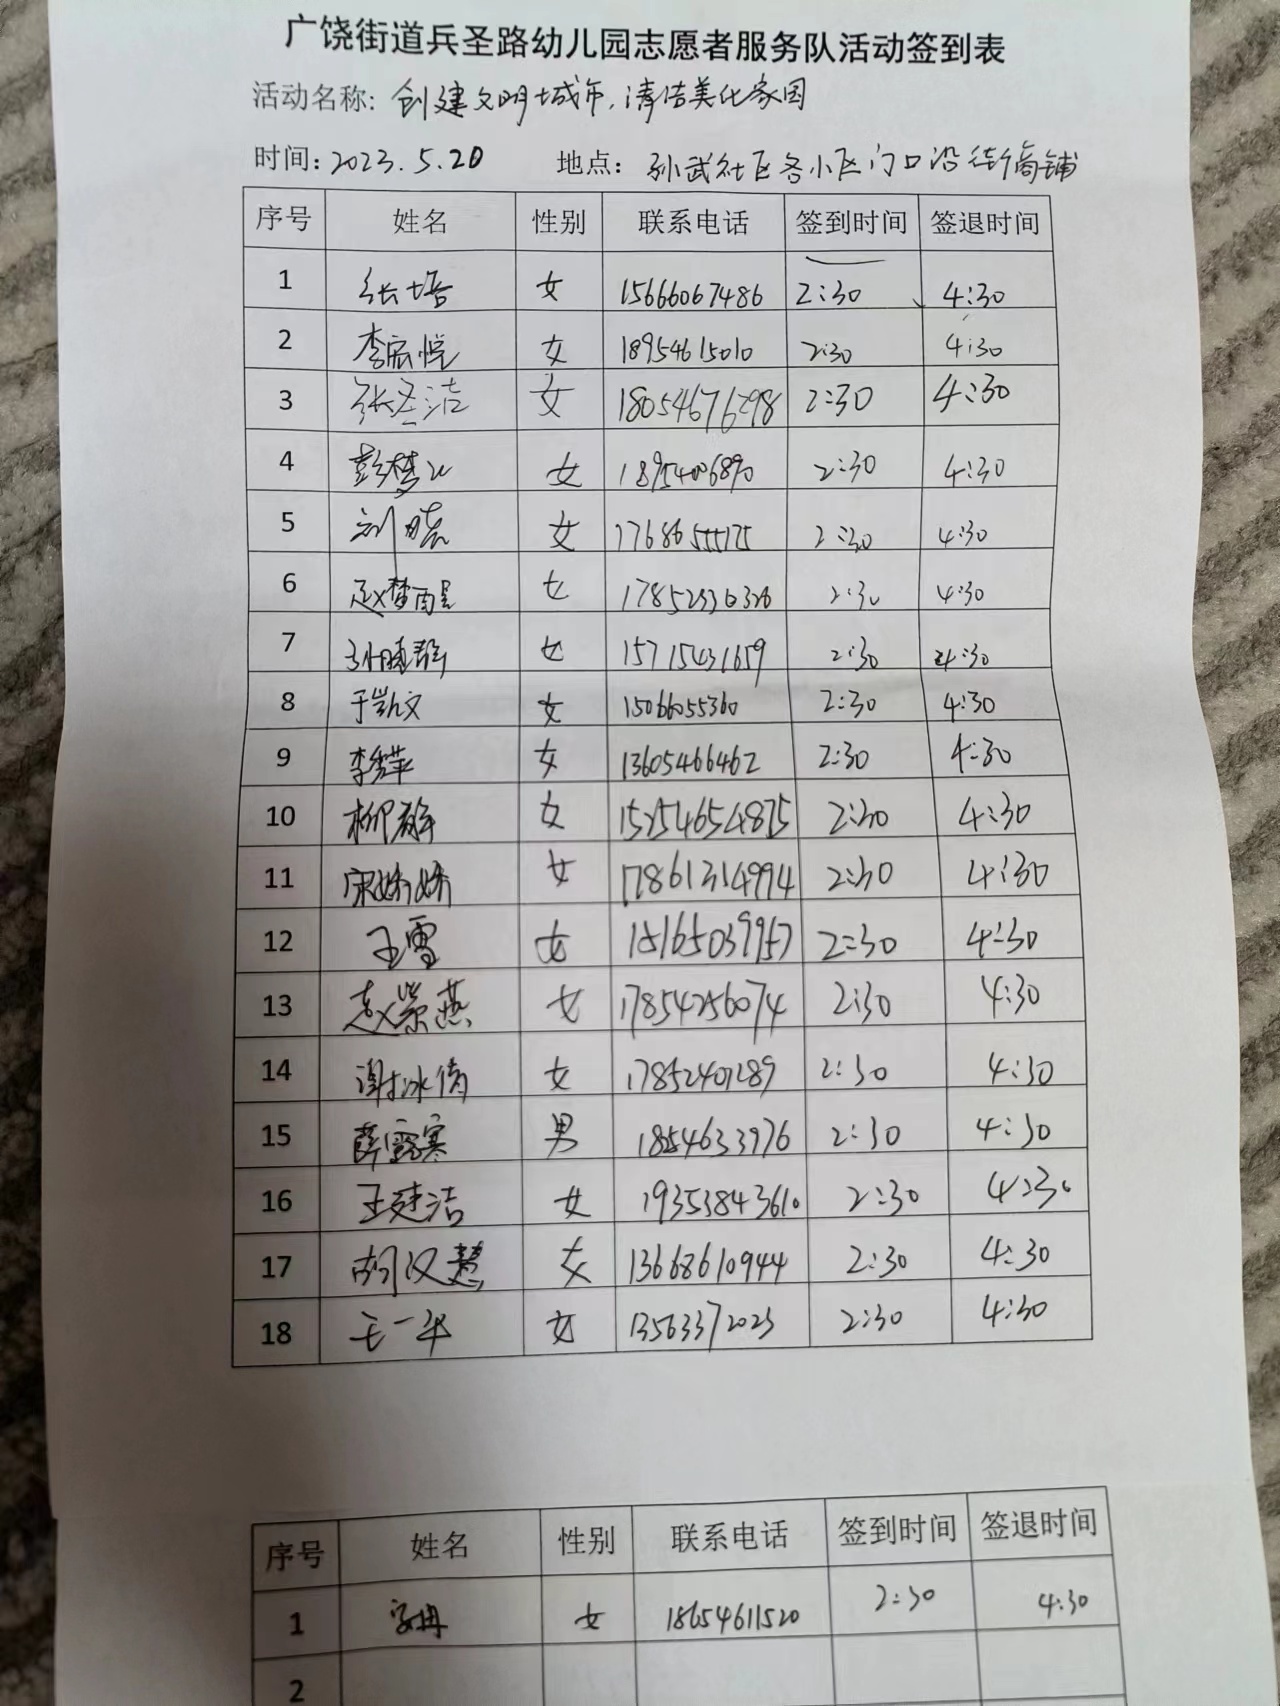 广饶街道兵圣路幼儿园志愿者服务队活动签到表
活动名称: 创建文明城市,清洁美化家园
时间: 2023.5.20 地点: 孙武社区各小区门口沿街商铺
序号 姓名 性别 联系电话 签到时间 签退时间
1 张培 女 15666067486 2:30 4:30
2 李宸悦 女 18954615010 2:30 4:30
3 张圣洁 女 18054676298 2:30 4:30
4 彭梦 女 2:30 4:30
5 刘晓 女 17686555175 2:30 4:30
6 赵梦雨 女 17852336326 2:30 4:30
7 女 15715431659 2:30 4:30
8 于凯文 女 15066055360 2:30 4:30
9 李秀萍 女 13605466462 2:30 4:30
10 柳静 女 15254654875 2:30 4:30
11 宋娇娇 女 17861314994 2:30 4:30
12 王雪 女 15165039957 2:30 4:30
13 赵荣燕 女 17854256074 2:30 4:30
14 谢冰倩 女 17852407289 2:30 4:30
15 薛露寒 男 2:30 4:30
16 王廷洁 女 19353843610 2:30 4:30
17 胡汉慧 女 13668610944 2:30 4:30
18 王一平 女 13563372023 2:30 4:30
序号 姓名 性别 联系电话 签到时间 签退时间
1 女 18654611520 2:30 4:30
2